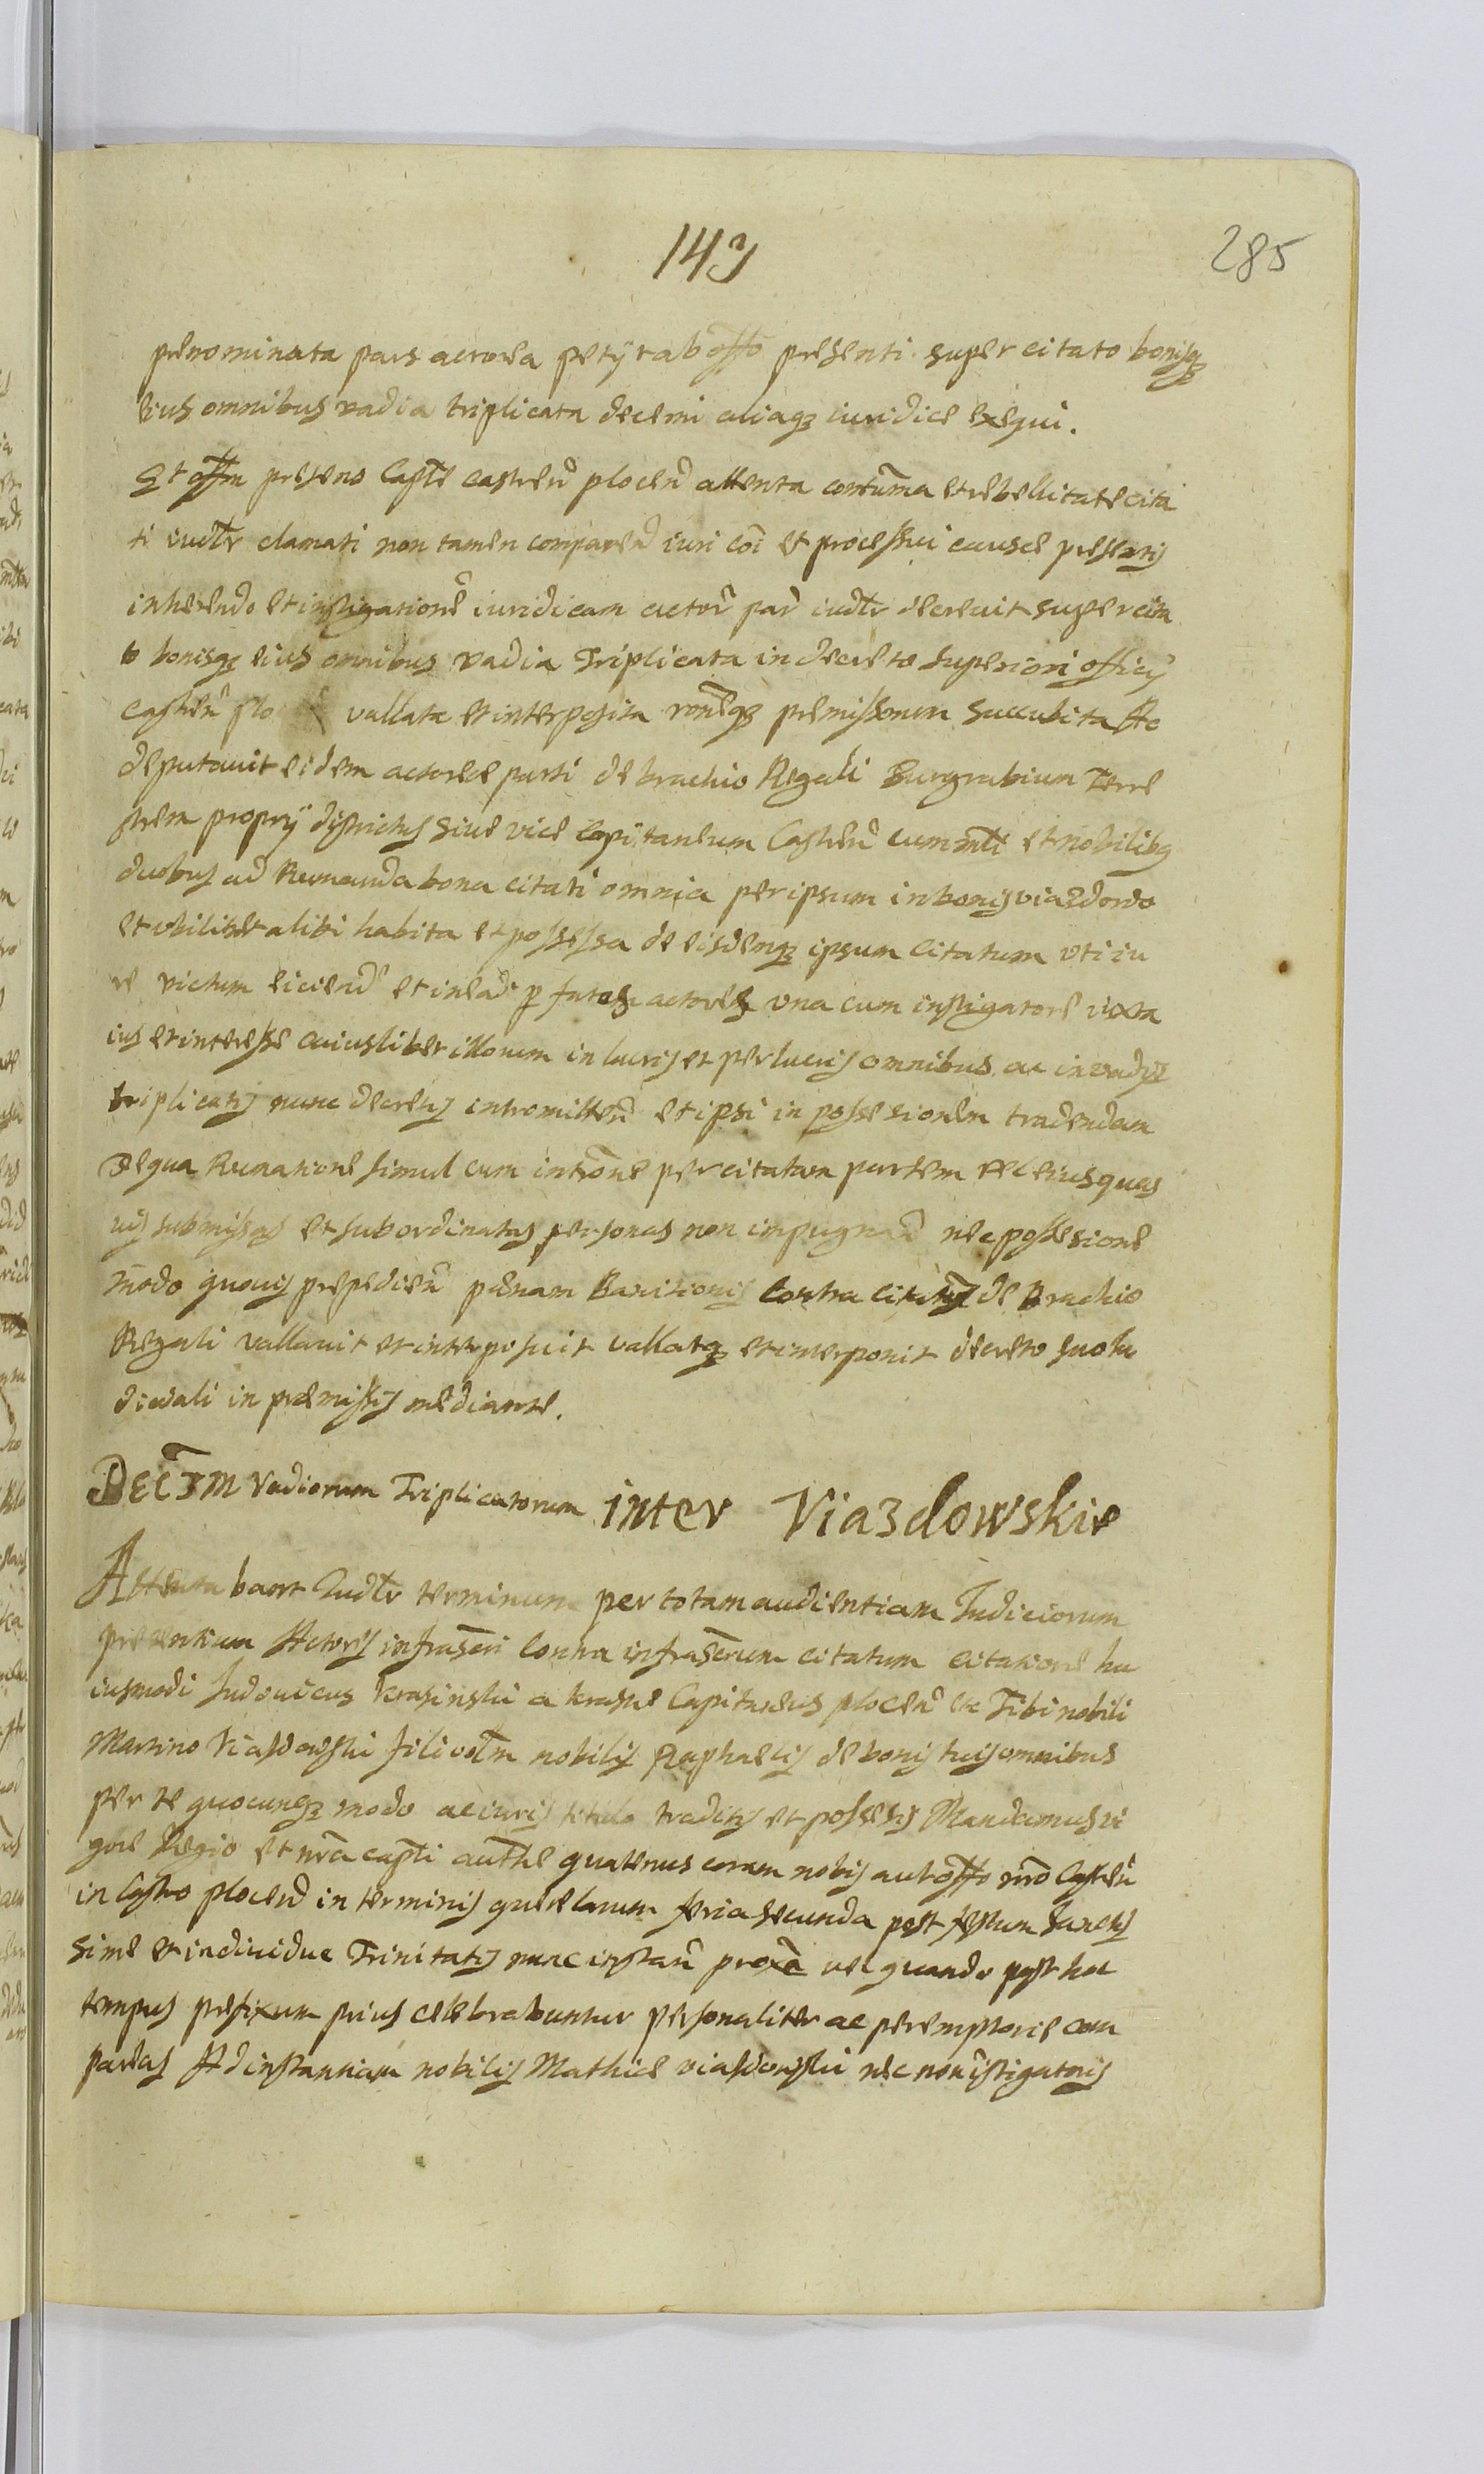 143
285
prenominata pars actorea petÿt ab offo presenti super citato bonisqȝ
eius omnibus vadia triplicata decerni aliaqȝ iuridice exequi.
Et offm presens Capte castren plocen attenta contuma et rebellitate cita
ti iudtr clamati non tamen comparen iuri coi et processui cause presentis
inherendo et instigatione iuridicam actor par iudtr decrevit super cita
to bonisqȝ eius omnibus vadia Triplicata in decreto superiori officÿ
Castren plo vallata et interposita roneqȝ premissorum succubita Ac
deputauit eidem actoree parti de brachio Regali Burgrabium Terre
strem proprÿ districtus siue vice Capitaneum Castren cum mti et nobilibȝ
duobus ad Rumanda bona citati omnia per ipsum in bonis viazdowo
et vbilibet alibi habita et possessa de eisdemqȝ ipsum Citatum vti iu
re victum eiciend et inead p fatos actores vna cum instigatore iuxta
ius et interesse cuiuslibet illorum in lucris et perlucris omnibus ac in vadÿs
triplicatis nunc decretis intromitten et ipsi in possesionem tradendam
De qua Rumatione simul cum introne per citatam partem vel eius quas
uis submissas et subordinatas personas non impugnan nec possesione
modo quouis prepedien penam Banitionis Contra citatum de Brachio
Regali vallauit et interposuit vallatqȝ et interponit decreto suo Iu
diciali in premissis mediante.
Dectm Vadiorum Triplicatorum inter Viazdowskie
Attentabant Iudtr terminum per totam audientiam Iudiciorum
presentium Actores infrascri Contra infrascrum citatum citatione hu
iusmodi Ludouicus Krasinski a Krasne Capitaneus plocen etc Tibi nobili
Martino Viasdowski fili oltm nobilis Raphaelis de bonis tuis omnibus
per te quocunqȝ modo ac iuris titulo traditis et possesis Mandamus vi
gore Regio et nra capti authe quatenus coram nobis aut offo nro Castren
in Castro plocen in terminis querelarum feria secunda post festum Sanctis
sime et indiuidue Trinitatis nunc instan proxe vel quando post hoc
tempus prefixum prius celebrabuntur personaliter ac peremptorie com
pareas Ad instantiam nobilis Mathie viasdowski nec non instigatoris